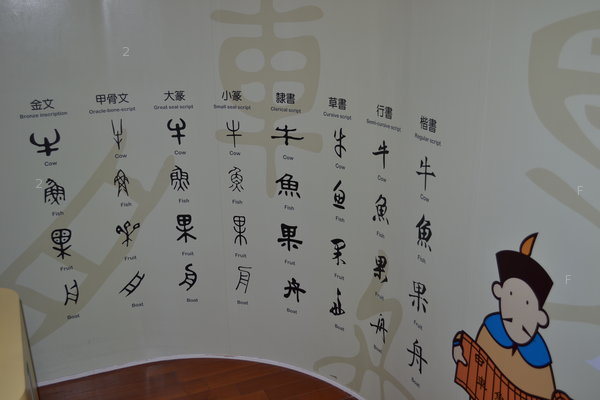 金文 甲骨文 大篆 小篆 隸書 草書 行書 楷書
Bronze inscription Oracle-bone-script Great seal script Small seal script Clerical script Cursive script Semi-cursive script Regular script
牛 牛 牛 牛 牛 牛 牛 牛
Cow Cow Cow Cow Cow Cow Cow Cow
魚 魚 魚 魚 魚 魚 魚 魚
Fish Fish Fish Fish Fish Fish Fish Fish
果 果 果 果 果 果 果 果
Fruit Fruit Fruit Fruit Fruit Fruit Fruit Fruit
舟 舟 舟 舟 舟 舟 舟 舟
Boat Boat Boat Boat Boat Boat Boat Boat
車